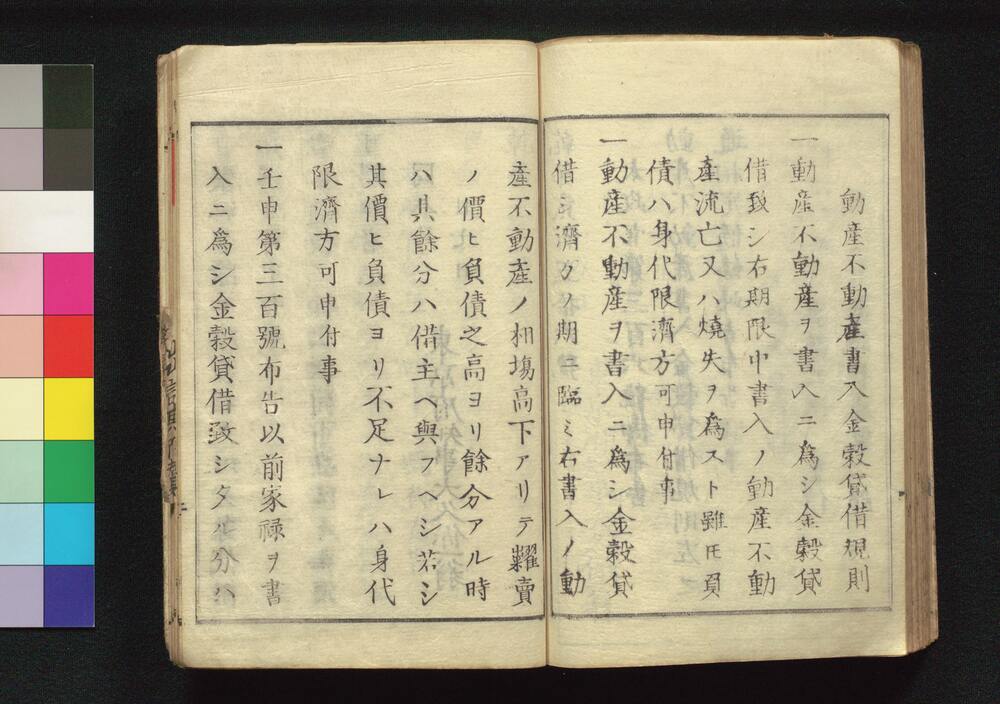 動産不動産書入金穀貸借規則
一動産不動産ヲ書入ニ爲シ金穀貸
借致シ右期限中書入ノ動産不動
産流亡又ハ燒失ヲ爲スト雖モ負
債ハ身代限濟方可申付事
一動産不動産ヲ書入ニ爲シ金穀貸
借シ濟方ノ期ニ臨ミ右書入ノ動
産不動産ノ相塲高下アリテ糶賣
ノ價ヒ負債之高ヨリ餘分アル時
ハ其餘分ハ借主ヘ與フヘシ若シ
其價ヒ負債ヨリ不足ナレハ身代
限濟方可申付事
一壬申第三百號布告以前家祿ヲ書
入ニ爲シ金穀貸借致シタル分ハ